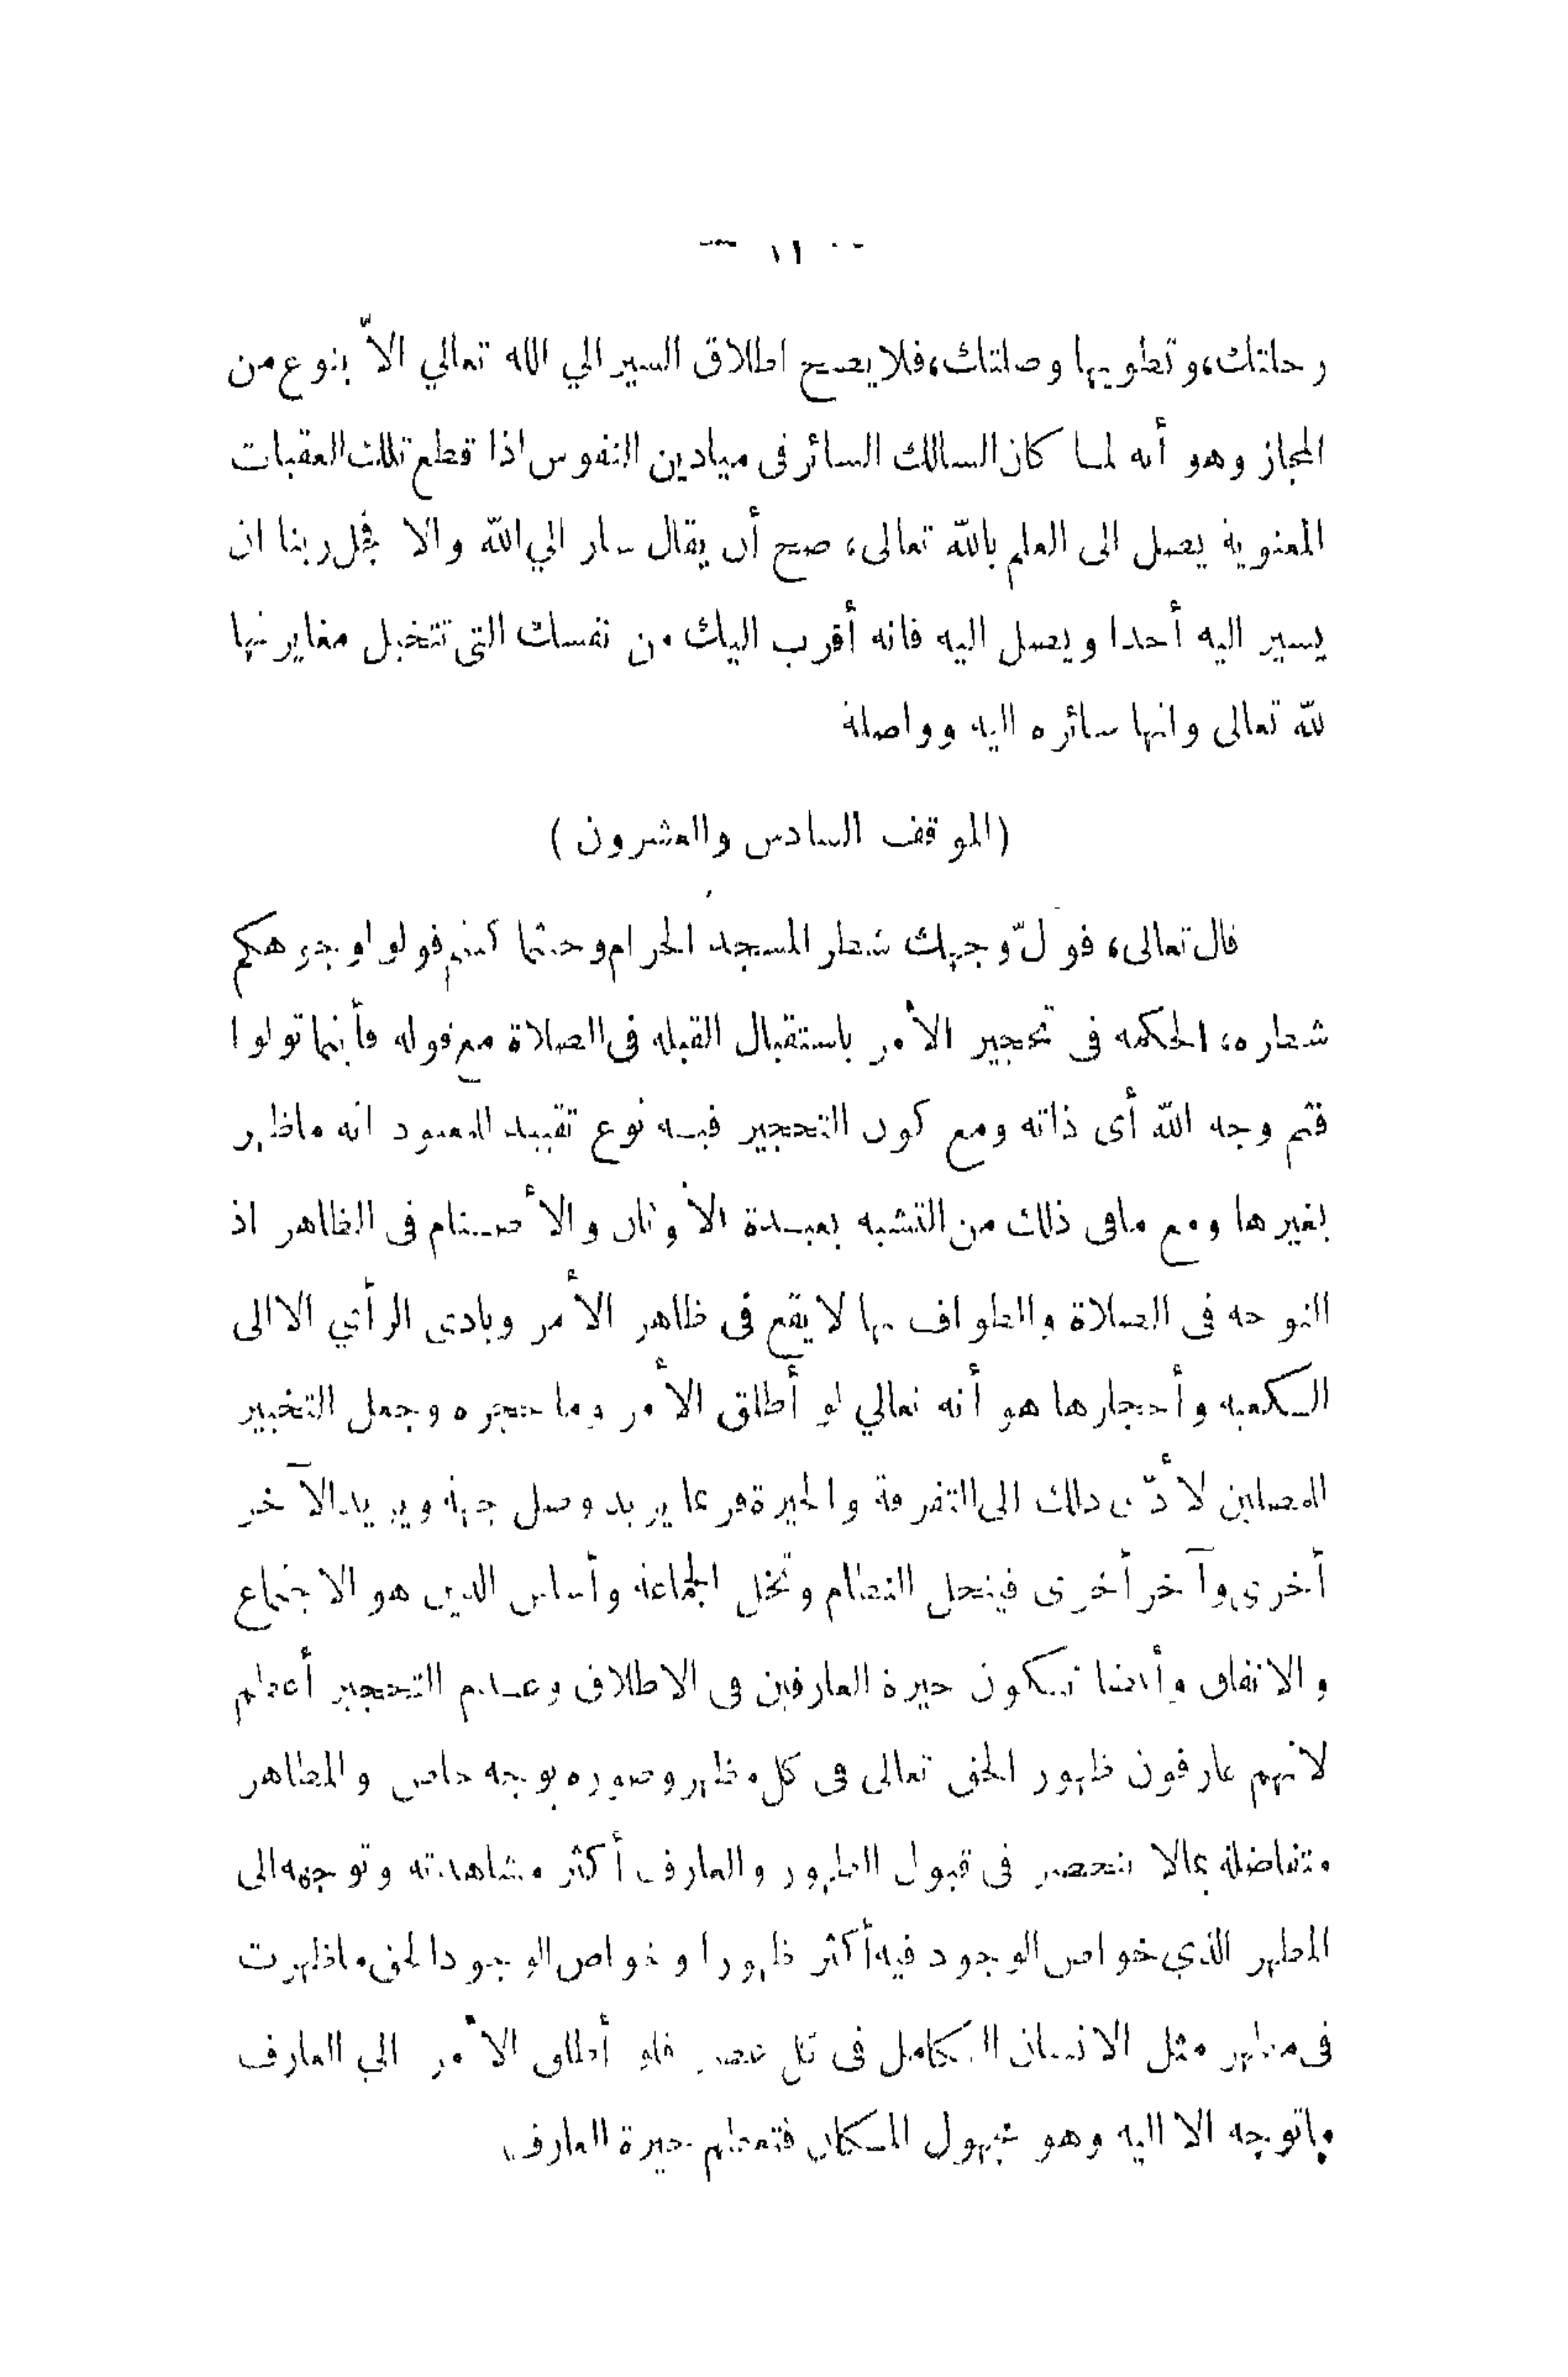 ١١
رحلتك، وتطويها وصلتك، فلا يصح اطلاق السير الي الله تعالي الاّ بنوع من
المجاز وهو أنه لما كان السالك السائر فى ميادين النفوس اذا قطع تلك العقبات
المعنوية يصل الى العلم بالله تعالى، صح أن يقال سار الي الله والا فجل ربنا ان
يسير اليه أحدا ويصل اليه فانه أقرب اليك من نفسك التى تتخيل مغايرتها
لله تعالى وانها سائره اليه وواصلة
(الموقف السادس والعشرون)
قال تعالى، فولّ وجهك شطر المسجد الحرام وحيثما كنتم فولوا وجوهكم
شطره، الحكمه فى تحجير الأمر باستقبال القبله فى الصلاة مع قوله فأينما تولوا
فثم وجه الله أى ذاته ومع كون التحجير فيه نوع تقييد للمعبود انه ماظهر
بغيرها ومع مافى ذلك من التشبه بعبدة الأوثان والأصنام فى الظاهر اذ
التوجه فى الصلاة والطواف بها لا يقع فى ظاهر الأمر وبادى الرأي الا الى
الكعبه وأحجارها هو أنه تعالي لو أطلق الأمر وما حجره وجعل التخيير
للمصلين لأدّى ذلك الى التفرقة والحيرة فربما يريد وصل جهة ويريد الآخر
أخرى وآخر أخرى فينحل النظام وتخل الجماعة وأساس الدين هو الاجتماع
والاتفاق وأيضا تكون حيرة العارفين فى الاطلاق وعدم التحجير أعظم
لأنهم عارفون ظهور الحق تعالى فى كل مظهر وصوره بوجه خاص والمظاهر
متفاضلة بمالا ينحصر فى قبول الظهور والعارف أكثر مشاهدته وتوجهه الى
المظهر الذي خواص الوجود فيه أكثر ظهورا وخواص الوجود الحق ماظهرت
فى مظهر مثل الانسان الكامل فى كل عصر فلو أطلق الأمر الي العارف
ماتوجه الا اليه وهو مجهول المكان فتعظم حيرة العارف